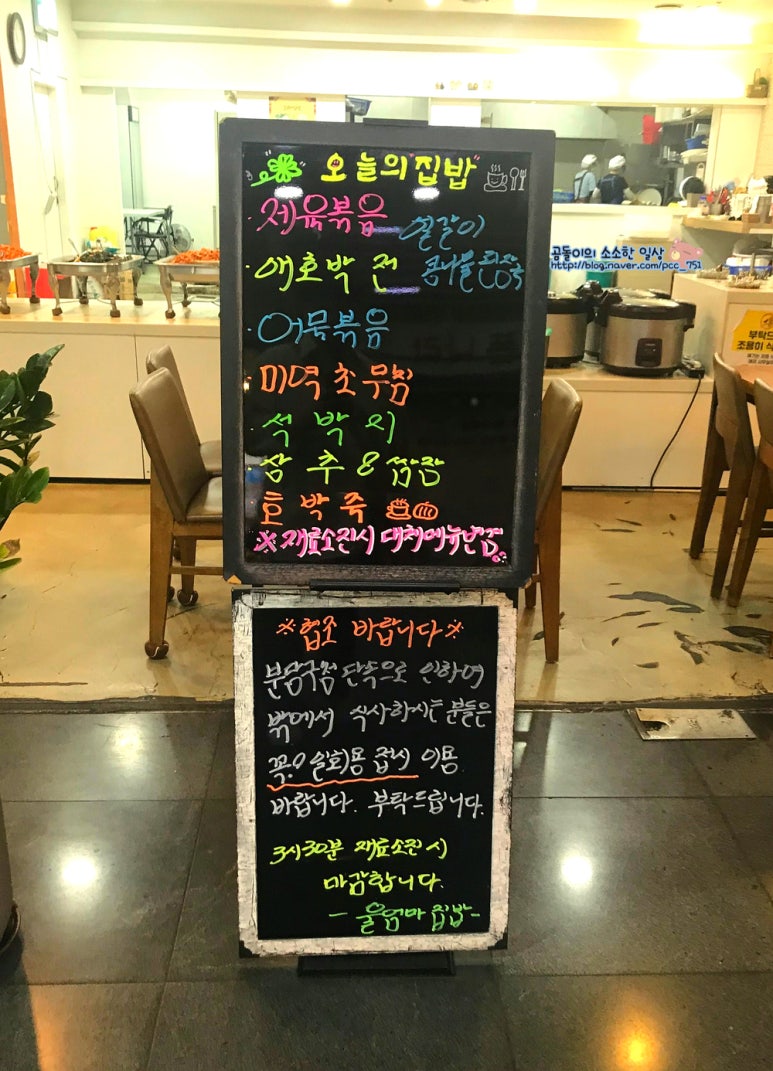 오늘의 "집밥"
· 제육볶음
얼갈이
콩나물 된장국
· 애호박 전
· 어묵볶음
· 미역 초무침
· 석 박 지
· 상 추 & 쌈장
호 박 죽
※ 재료소진시 대체메뉴변경
※ 협조 바랍니다 ※
분당구청 단속으로 인하여
밖에서 식사하시는 분들은
꼭! 일회용 접시 이용
바랍니다. 부탁드립니다.
3시30분 재료소진 시
마감합니다.
- 울엄마 집밥 -
곰돌이의 소소한 일상
http://blog.naver.com/pcc_751
조용히